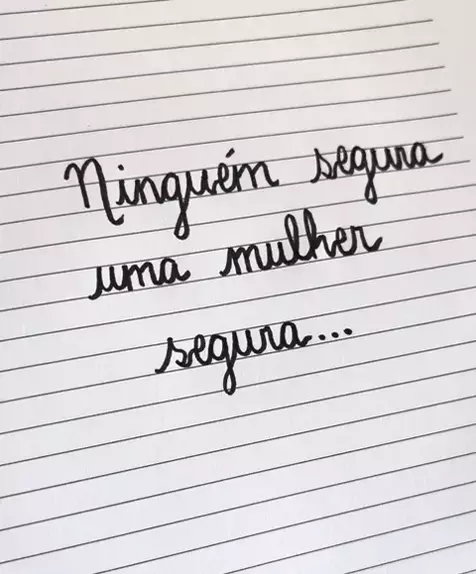 Ninguém segura
uma mulher
segura...